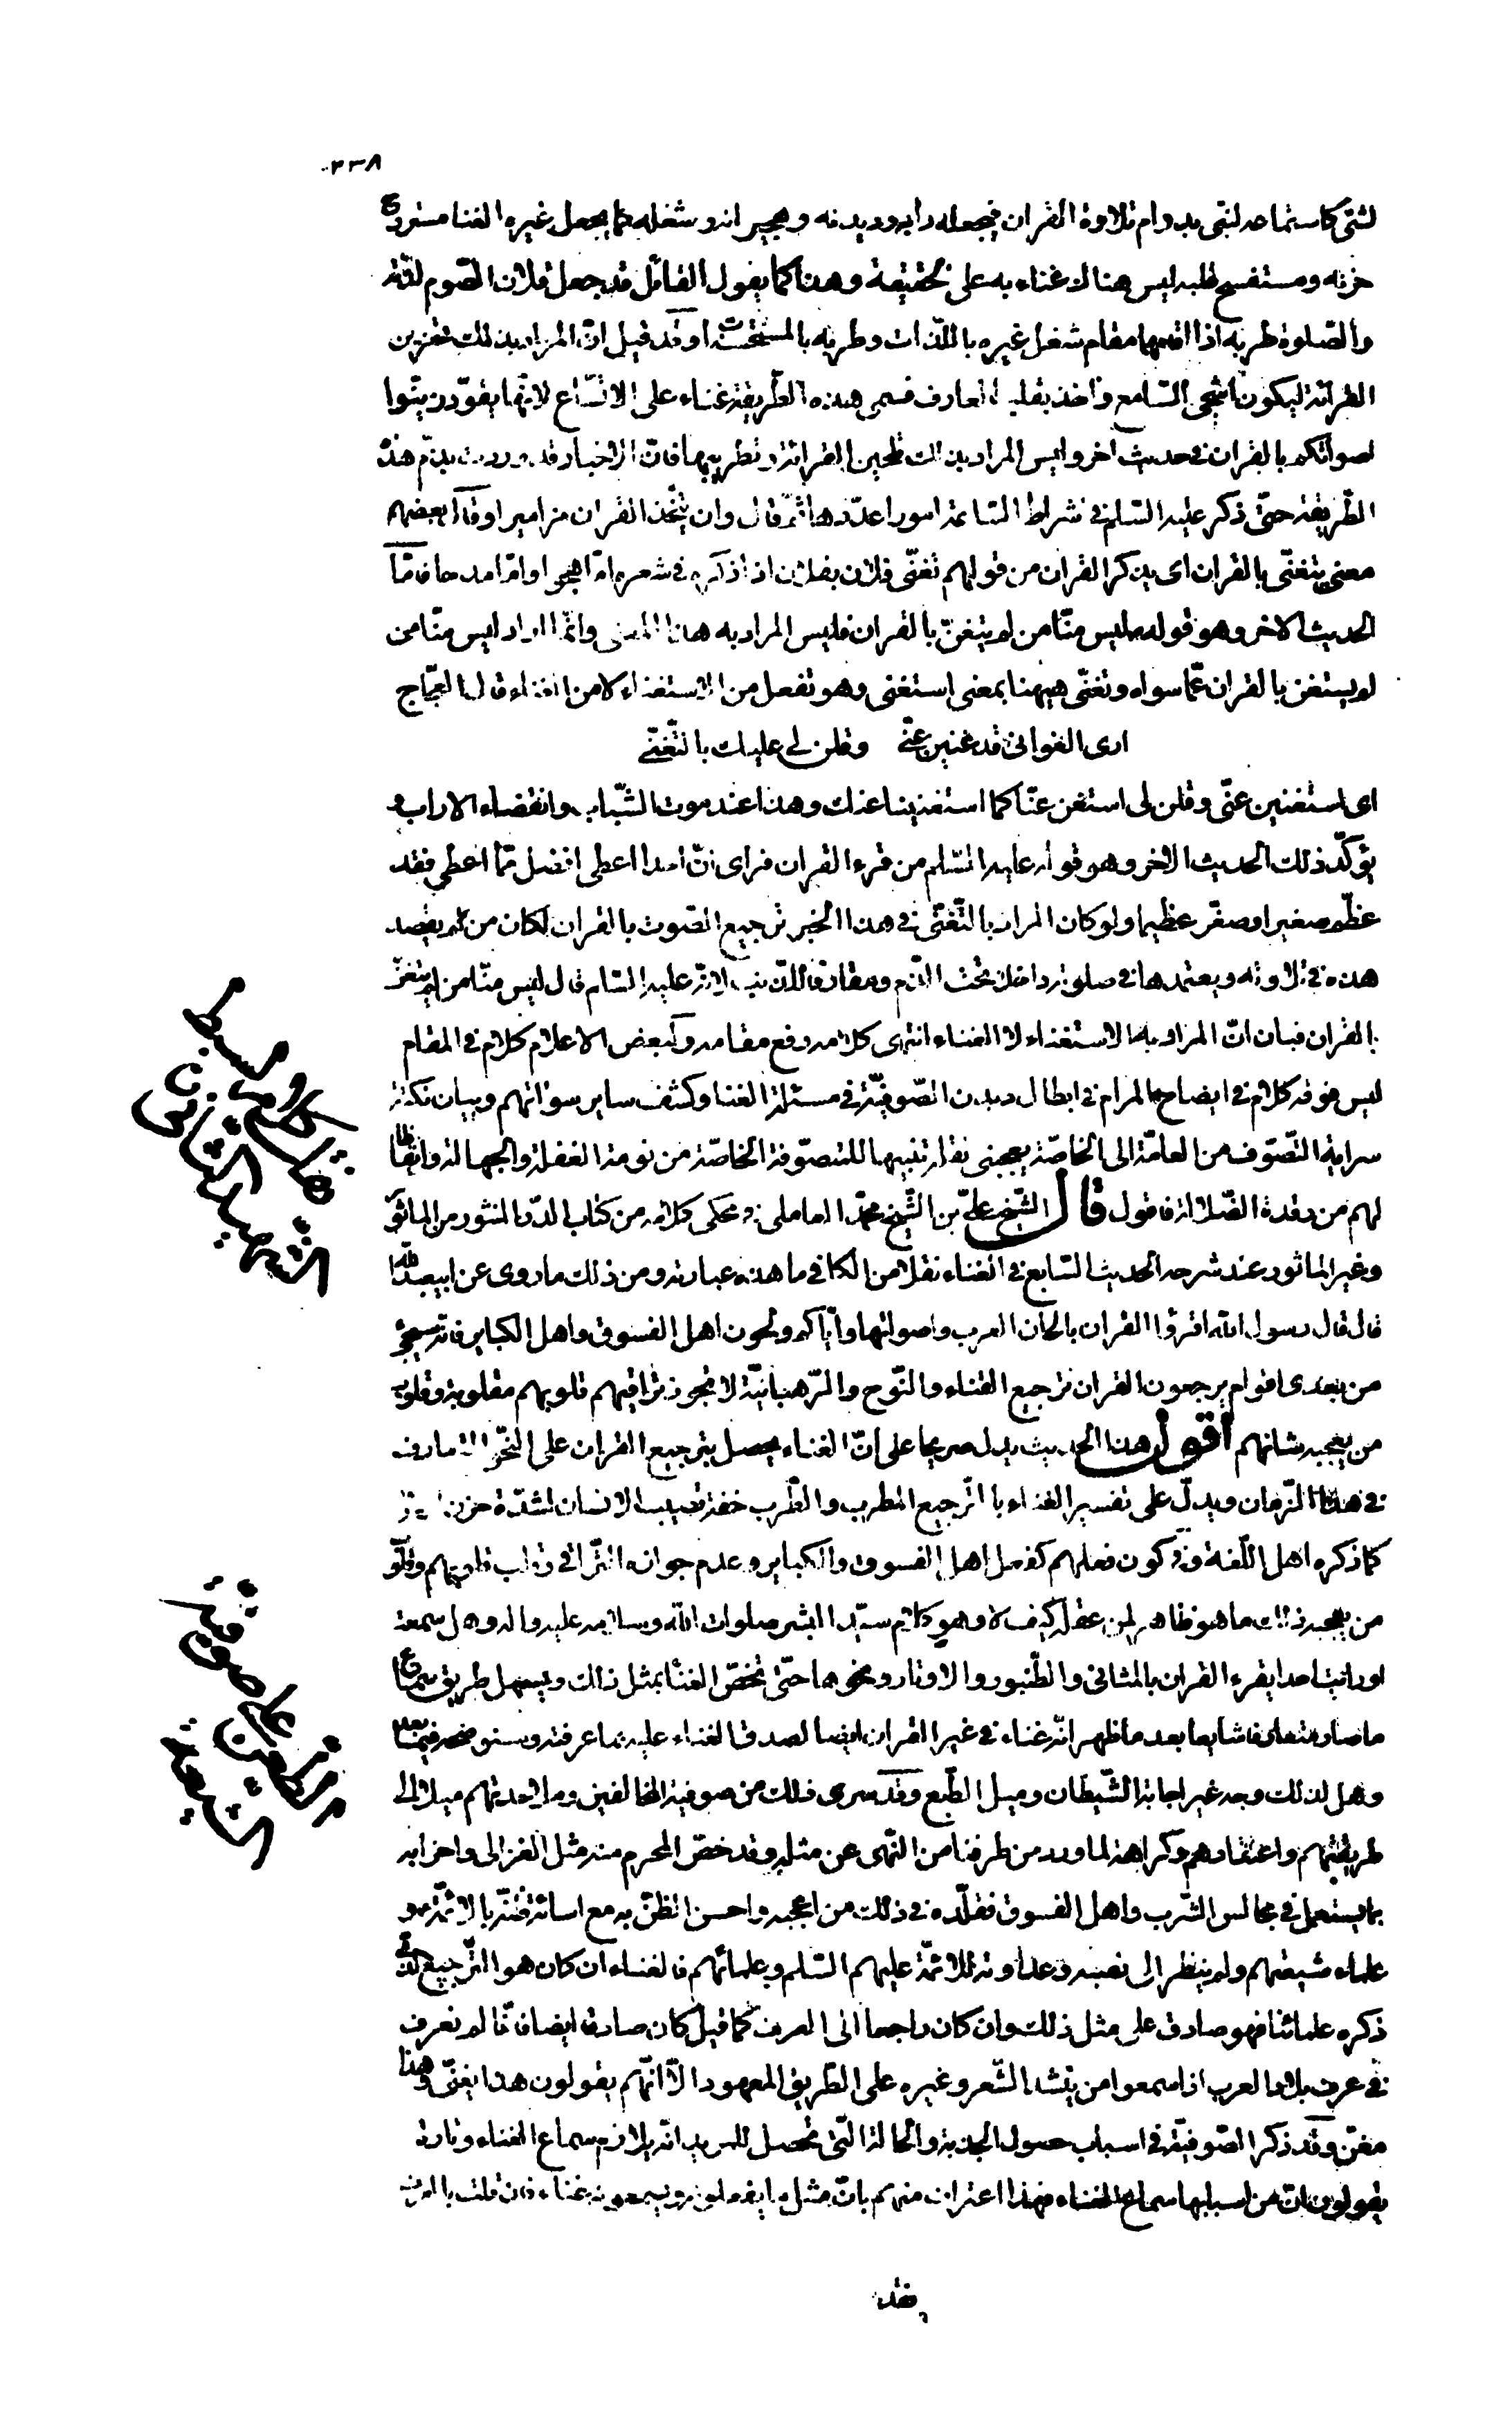 ٣٣٨
لشئ كاستماعه لنبي بدوام تلاوة القران فيجعله دابه وديدنه وهجيراه وشغله كما يجعل غيره الغنا مستروح
حزنه ومستفسح قلبه ليس هناك غناء به على الحقيقة وهذا كما يقول القائل قد جعل فلان الصوم لذته
والصلوة طربه اذا اقامهما مقام شغل غيره باللذات وطربه بالمستحسنات وقد قيل ان المراد بذلك تحزين
القرائة ليكون اشجى للسامع واخذ بقلب العارف فسمى هذه الطريقة غناء على الاتساع لانها يقود زينوا
اصواتكم بالقران في حديث اخر وليس المراد بذلك تلحين القرائة وتطريبها فان الاخبار قد وردت بذم هذه
الطريقة حتى ذكر عليه السلم في شراط الساعة امورا عددها ثم قال وان يتخذ القران مزاميرا وقال بعضهم
معنى يتغنى بالقران اى يذكر القران من قولهم تغنى فلان بفلان اذا ذكره في شعره اما هجوا واما مدحا فاما
الحديث الاخر وهو قوله ليس منا من لم يتغن بالقران فليس المراد به هذا المعنى وانما اراد ليس منا من
لم يستغن بالقران عما سواه وتغنى هيهنا بمعنى استغنى وهو تفعل من الاستغناء لا من الغناء قال العجاج
ارى الغواني قد غنين عني وقلن لي عليك بالتغني
اى استغنين عنى وقلن لى استغن عنا كما استغنينا عنك وهذا عند موت الشباب وانقضاء الاراب و
يؤكد ذلك الحديث الاخر وهو قوله عليه السلم من قرء القران فراى ان احدا اعطى افضل مما اعطى فقد
عظم صغيرا وصغر عظيما ولو كان المراد بالتغنى في هذا الخبر ترجيع الصوت بالقران لكان من لم يقصد
هذه في تلاوته ويعتمدها في صلوته داخلا تحت الذم ومقارفا للذنب لانه عليه السلم قال ليس منا من لم يتغن
بالقران فبان ان المراد به الاستغناء لا الغناء انتهى كلامه رفع مقامه ولبعض الاعلام كلام في المقام
ليس فوقه كلام في ايضاح المرام في ابطال ديدن الصوفية في مسئلة الغنا وكشف ساير سوآتهم وبيان نكتة
سراية التصوف من العامة الى الخاصة يعجبنى نقله تنبيها للمتصوفة الخاصة من نومة الغفلة والجهالة وايقاظا
لهم من رقدة الضلالة فاقول قال الشيخ على بن الشيخ محمد العاملى في محكى كلامه من كتاب الدر المنثور من الماثور
وغير الماثور عند شرحه الحديث السابع في الغناء نقلا من الكافي ما هذه عبارته ومن ذلك ما روى عن ابيعبد الله
قال قال رسول الله اقرؤا القران بالحان العرب واصواتها واياكم ولحون اهل الفسوق واهل الكباير فانه سيجئ
من بعدى اقوام يرجعون القران ترجيع الغناء والنوح والرهبانية لا تجوز تراقيهم قلوبهم مقلوبة وقلوب
من يعجبه شانهم اقول هذا الحديث يدل صريحا على ان الغناء يحصل بترجيع القران على النحو المتعارف
في هذا الزمان ويدل على تفسير الغناء بالترجيع المطرب والطرب خفة تصيب الانسان لشدة حزن
كما ذكره اهل اللغة وفي كون فعلهم كفعل اهل الفسوق والكباير وعدم جوازه التراقي وقلب قلوبهم وقلوب
من يعجبه ذلك ما هو ظاهر لمن عقل كيف لا وهو كلام سيد البشر صلوات الله وسلامه عليه واله وهل سمعت
او رايت احدا يقرء القران بالمثانى والطنبور والاوتار ونحوها حتى تخص الغنا بمثل ذلك ويسهل طريق سماع
ما صار متعارفا شايعا بعد ما ظهر انه غناء في غير القران ايضا لصدق الغناء عليه بما عرفته وستوضحه فيما بعد
وهل لذلك وجه غير اجابة الشيطان وميل الطبع وقد سرى ذلك من صوفية المخالفين وملاحدتهم ميلا الى
طريقتهم واعتقادهم وكراهة لما ورد من طرفنا من النهى عن مثله وقد خص المحرم منه مثل الغزالى واحزابه
بما يستعمل في مجالس الشرب واهل الفسوق فقلده في ذلك من اعجبه واحسن الظن به مع اسائة ظنه بالائمة و
علماء شيعتهم ولم ينظر الى نصبه وعداوته للائمة عليهم السلم وعلمائهم فالغناء ان كان هو الترجيع الذى
ذكره علمائنا فهو صادق على مثل ذلك وان كان راجعا الى العرف كما قيل كان صادقا ايضا فانا لم نعرف
في عرف بلاد العرب اذا سمعوا من ينشد الشعر وغيره على الطريق المعهود الا انهم يقولون هذا يغنى وهذا
مغن وقد ذكر الصوفية في اسباب حصول الجذبة والحالة التى تحصل للمريد انه يلازم سماع الغناء وتارة
يقولون ان من اسبابها سماع الغناء فهذا اعتراف منهم بان مثل ما يفعلونه ويسمعونه غناء فان قلت بالفرق
كلام سبط
الشهيد الثاني
في الطعن على صوفية
الشيعة
فقد